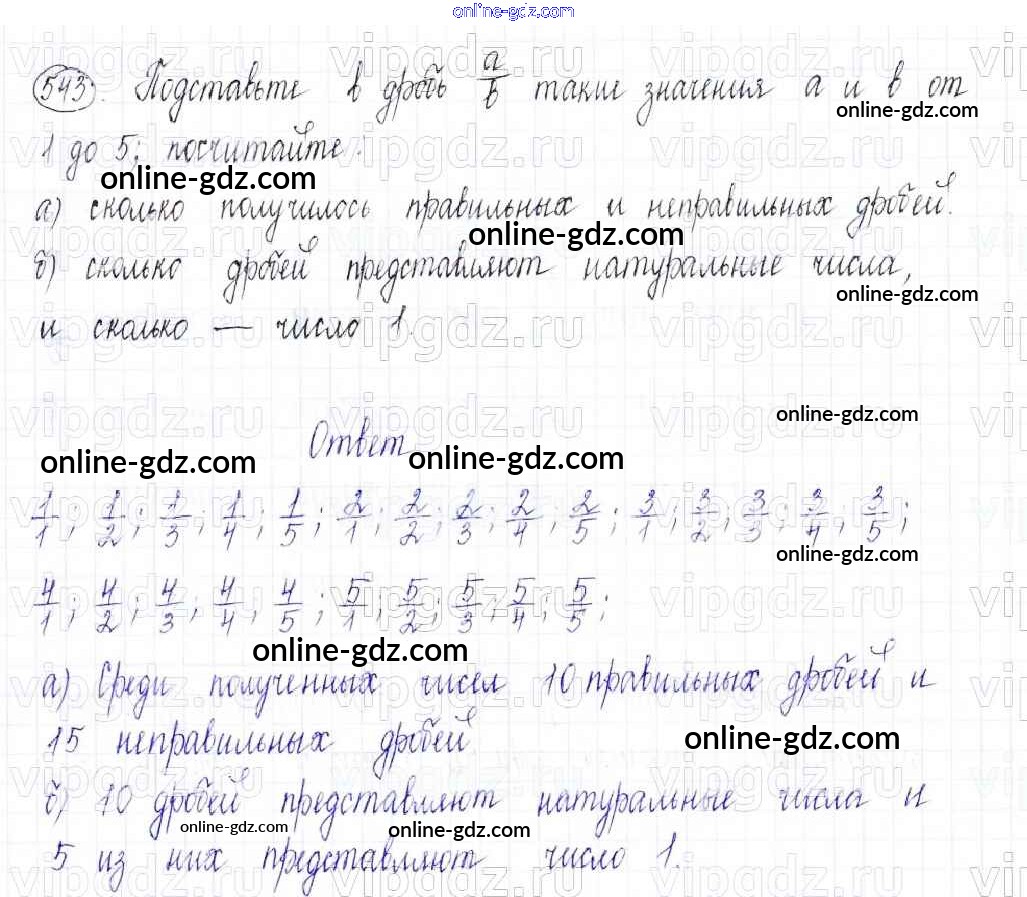 online-gdz.com
543. Подставьте в дробь a/b такие значения а и в от
online-gdz.com
1 до 5; посчитайте:
online-gdz.com
а) сколько получилось правильных и неправильных дробей.
online-gdz.com
б) сколько дробей представляют натуральные числа,
online-gdz.com
и сколько — число 1.
online-gdz.com
Ответ
online-gdz.com online-gdz.com
1/1; 1/2; 1/3; 1/4; 1/5; 2/1; 2/2; 2/3; 2/4; 2/5; 3/1; 3/2; 3/3; 3/4; 3/5;
online-gdz.com
4/1; 4/2; 4/3; 4/4, 4/5; 5/1; 5/2; 5/3; 5/4; 5/5;
online-gdz.com
а) Среди полученных чисел 10 правильных дробей и
15 неправильных дробей
online-gdz.com
б) 10 дробей представляют натуральные числа и
online-gdz.com online-gdz.com
5 из них представляют число 1.
vipgdz.ru